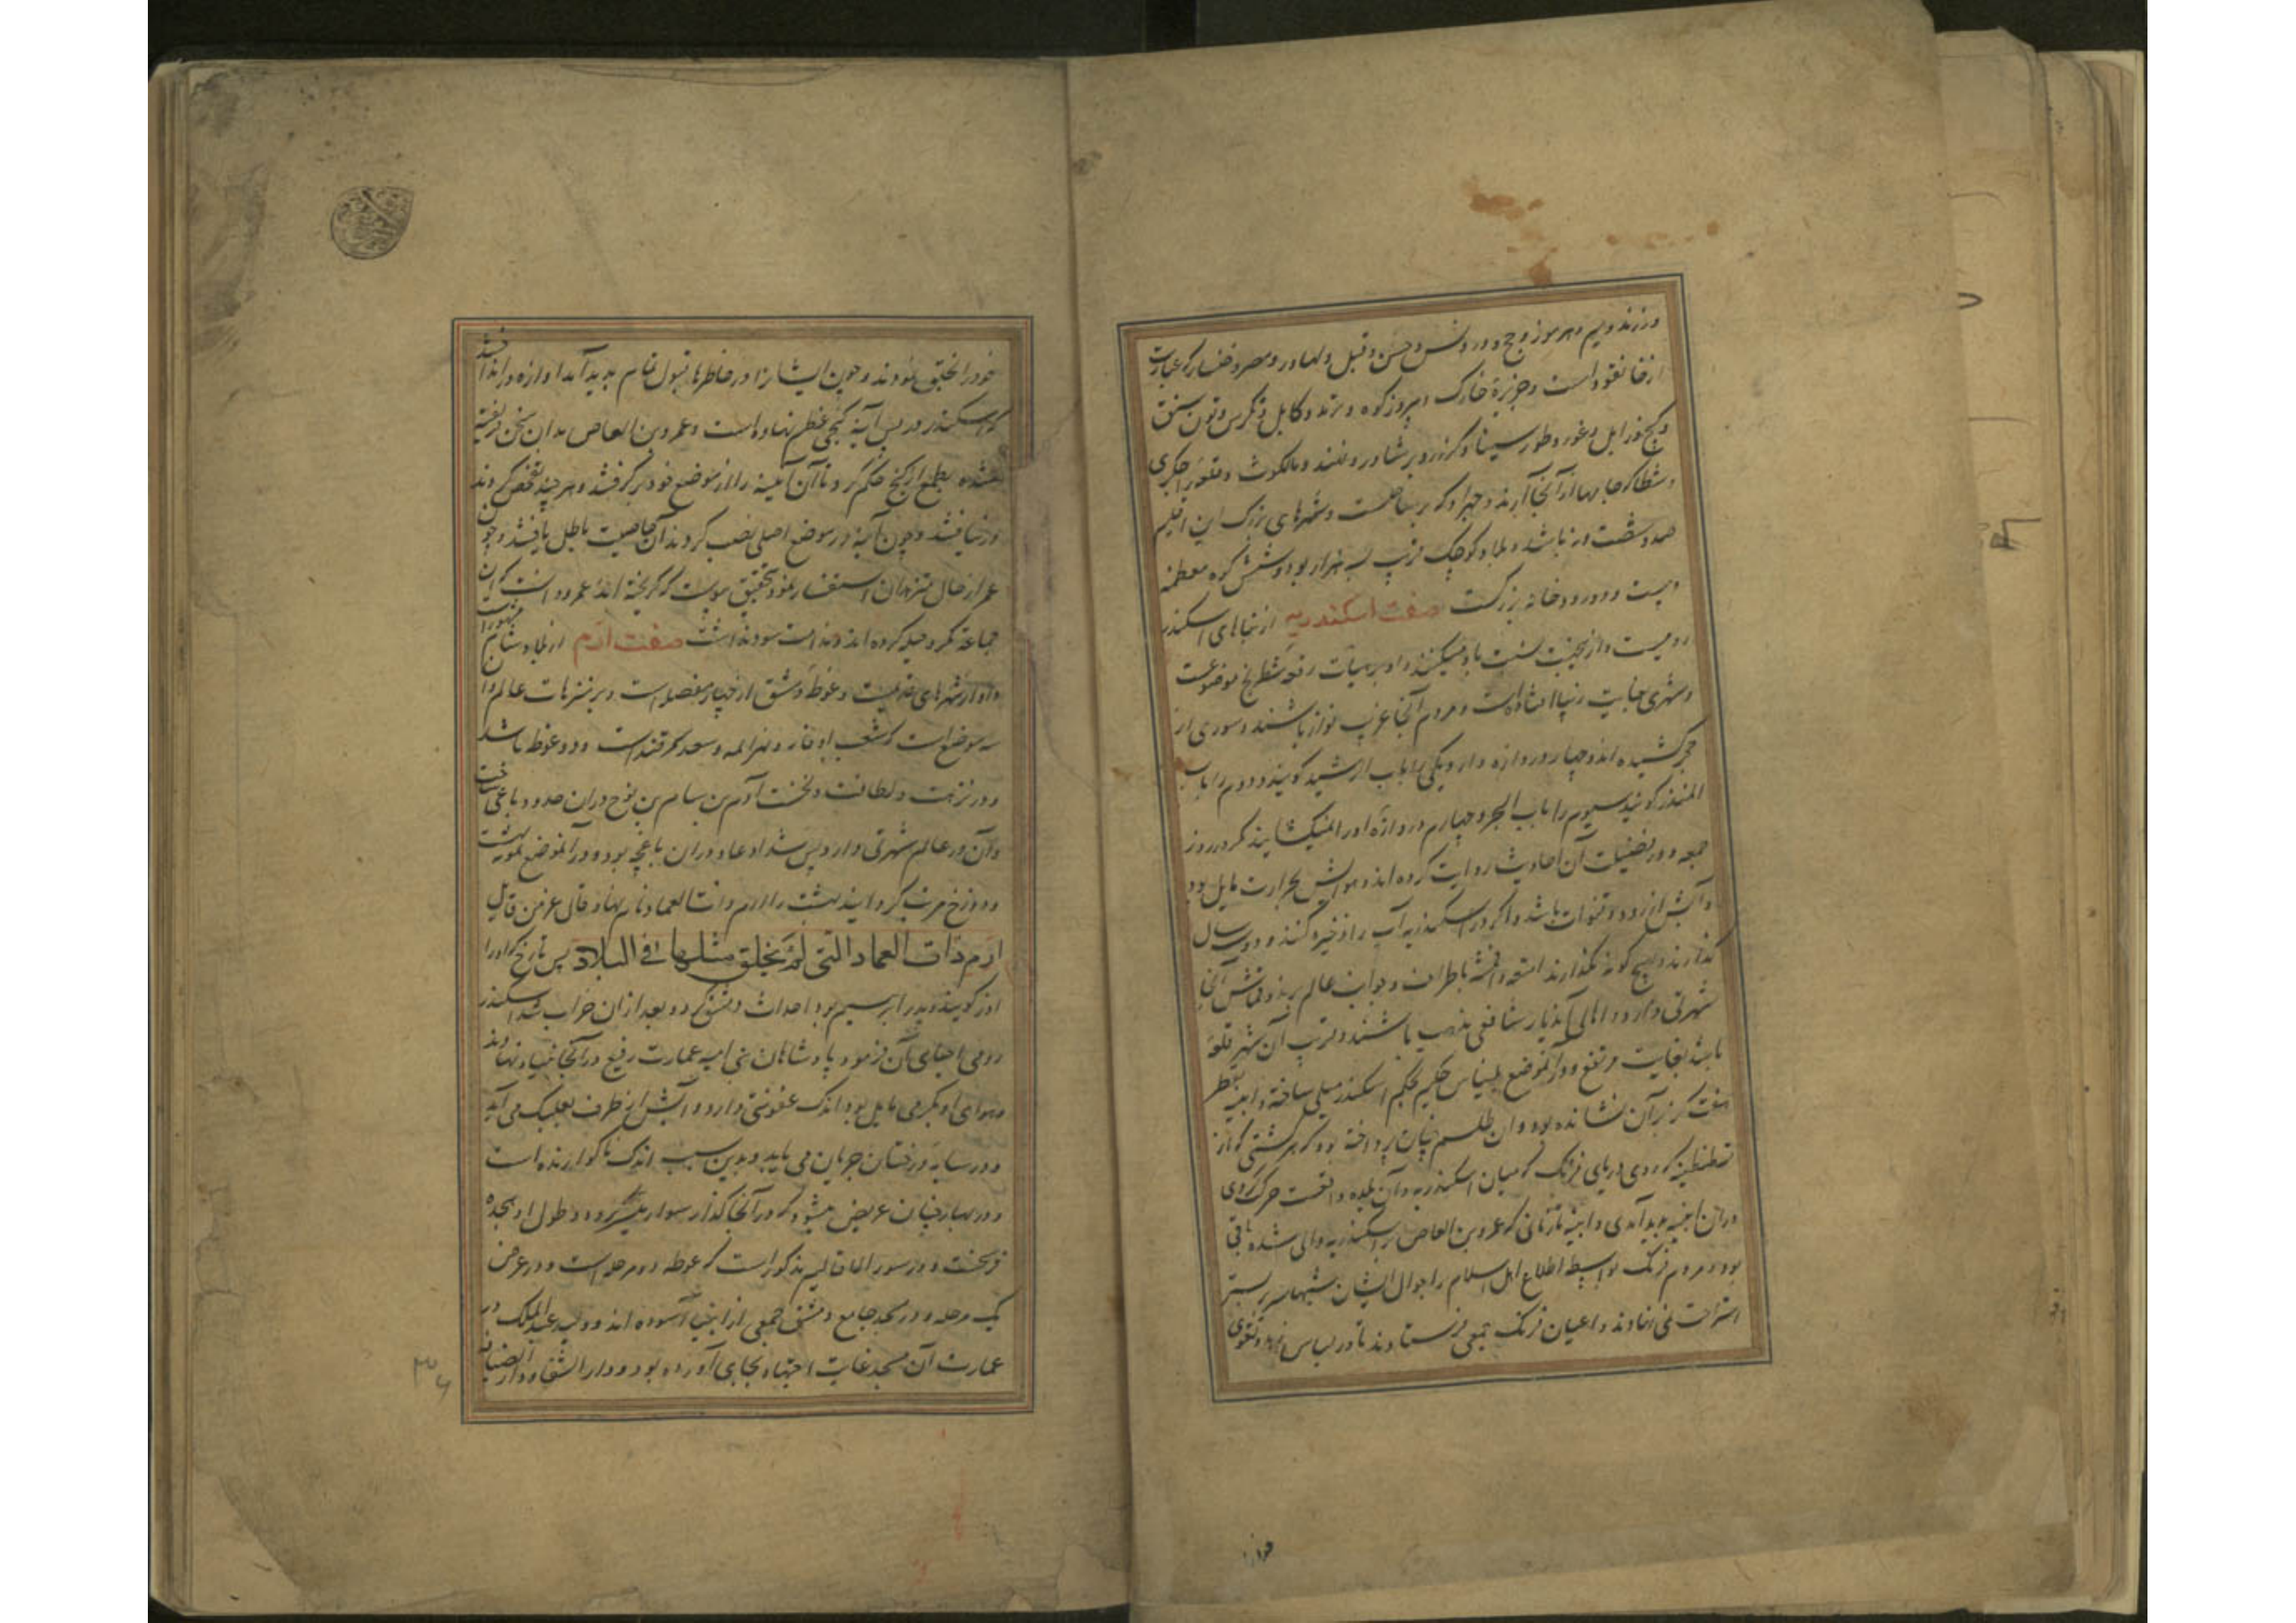 ورزند و یم و هرموز و ج و دروش و حسن و قبل و لهاور و مصر و فضار که عبارت
ازخانقو است و جزیرهٔ خارک و پیروز کوه و برند و کابل و کرس و تون سنق
و کنج وزابل و غور و طور سینا و کزرو برشاور و ملکوث و قلعه جکری
و شطا که جامها از آنجا آرند و جهراد که بر ساحلست و شهرهای بزرگ این اقلیم
صد و شصت و نه باشد و بلاد کوچک قریب سه هزار بود و شش کره معظمه
و بیست و دو رودخانه بزرگست صفت اسکندریه از بناهای اسکندر
رومیست و از نخست سنت باد میکنند و او بر هیأت رقعه شطرنج موضوعست
و شهری بغایت زیبا افتاده است و مردم آنجا غریب نواز باشند و سوری از
حجر کشیده اند و چهار دروازه دارد یکی را باب الرشید کویند و دوم را باب
المنذر کویند سیوم را باب البحر و چهارم دروازه اورا نمیکشایند مکر در روز
جمعه و در فضیلت آن احادیث روایت کرده اند و هوایش بحرارت مایل بود
و آبش از رود و قنوات باشد و اکر در اسکندریه آب را ذخیره کنند و دویست سال
بگذارند هیچ کونه نکذارند امتعه و اقمشه باطراف و جوانب عالم برند و قماش آنجا
شهرتی دارد و اهالی آندیار شافعی مذهب باشند و قریب آن شهر قلعه
باشد بغایت مرتفع و در آن موضع بلیناس حکیم بحکم اسکندر میلی ساخته و آیینه بقطر
هفت کز بر آن نشانده بود و آن طلسم چنان پرداخته بود که هر کشتی که از
قسطنطنیه که روی دریای فرنگ که میان اسکندریه و آن بلده واقعست حرکت کردی
در آن آیینه پدید آمدی و آیینه تا زمانی که عمرو بن العاص بر اسکندریه والی شده باقی
بود و مردم فرنگ بواسطه اطلاع اهل اسلام بر احوال ایشان شبها سر بر بستر
استراحت نمی نهادند و اعیان فرنگ جمعی فرستادند تا در لباس زهد و تقوی
خود را
خود را بخلق نمودند و چون ایشانرا در خاطرها قبول تمام پدید آمد آوازه در انداختند
که اسکندر در پس آینه کنجی عظیم نهاده است و عمرو بن العاص بدان سخن فریفته
شده بطمع آن کنج حکم کرد تا آن آیینه را از موضع خود برکرفتند و هرچند تفحص کردند
زر نیافتند و چون آینه در موضع اصلی نصب کردند آن خاصیت باطل یافتند و چون
عمر از حال متزهدان استفسار نمود بتحقیق پیوست که کریخته اند عمرو دانست که آن
جماعة مکر و حیله کرده اند و ندامت سود نداشت صفت ارم از بلاد شام مشهور است
و او از شهرهای قدیمست و غوطه دمشق از چهار مفصل است و بر متنزهات عالم و آن
سه موضع است که شعب بوان و نهر ابله و سعد سمرقند است و دو غوطه باشد
و در نزهت و لطافت و نخست آدم بن سام بن نوح در آن حدود باغی ساخت
و آن در عالم شهرتی دارد پس شداد عاد در آن باغچه بود و در آن موضع نمونه بهشت
و دوزخ مرتب کردانید بهشت را ارم ذات العماد نام نهاد و قال عز من قایل
ارم ذات العماد التی لم یخلق مثلها فی البلاد پس تارخ که اورا
آزر کویند و پدر ابراهیم بود احداث دمشق کرد و بعد از آن خراب شد اسکندر
رومی احیای آن فرمود و پادشاهان بنی امیه عمارت رفیع در آنجا بنیاد نهادند
و هوای او بکرمی مایل بود اندک عفونتی دارد و آبش از طرف بعلبک می آید
و در سایهٔ درختان جریان می یابد و بدین سبب اندک ناکوارنده است
و در بهار چنان عریض میشود که در آنجا کذار سوار میسر کردد و طول او هجده
فرسخست و در صور الاقالیم مذکور است که غوطه دو مرحله است و در عرض
یک مرحله و در مسجد جامع دمشق جمعی از انبیا آسوده اند و ولید عبد الملک در
عمارت آن مسجد غایت اجتهاد بجای آورده بود و دار الشفا و دار الضیافه